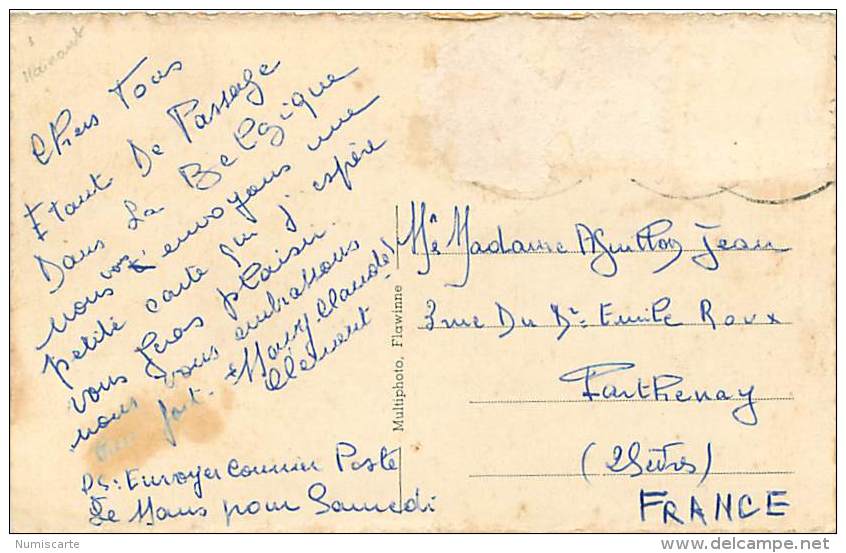 Hainaut
Chers Tous
Etant De Passage
Dans La Belgique
nous vous envoyons une
petite carte qui j'espère
vous feras plaisir.
nous vous embrassons
bien fort. Maury, Claude,
Clément
PS: Envoyer Courrier Poste
Le Mans pour Samedi
Multiphoto, Flawinne
Madame Jean
3 rue Du Dr Emile Roux
Parthenay
(2 Sèvres)
FRANCE
Numiscarte
delcampe.net